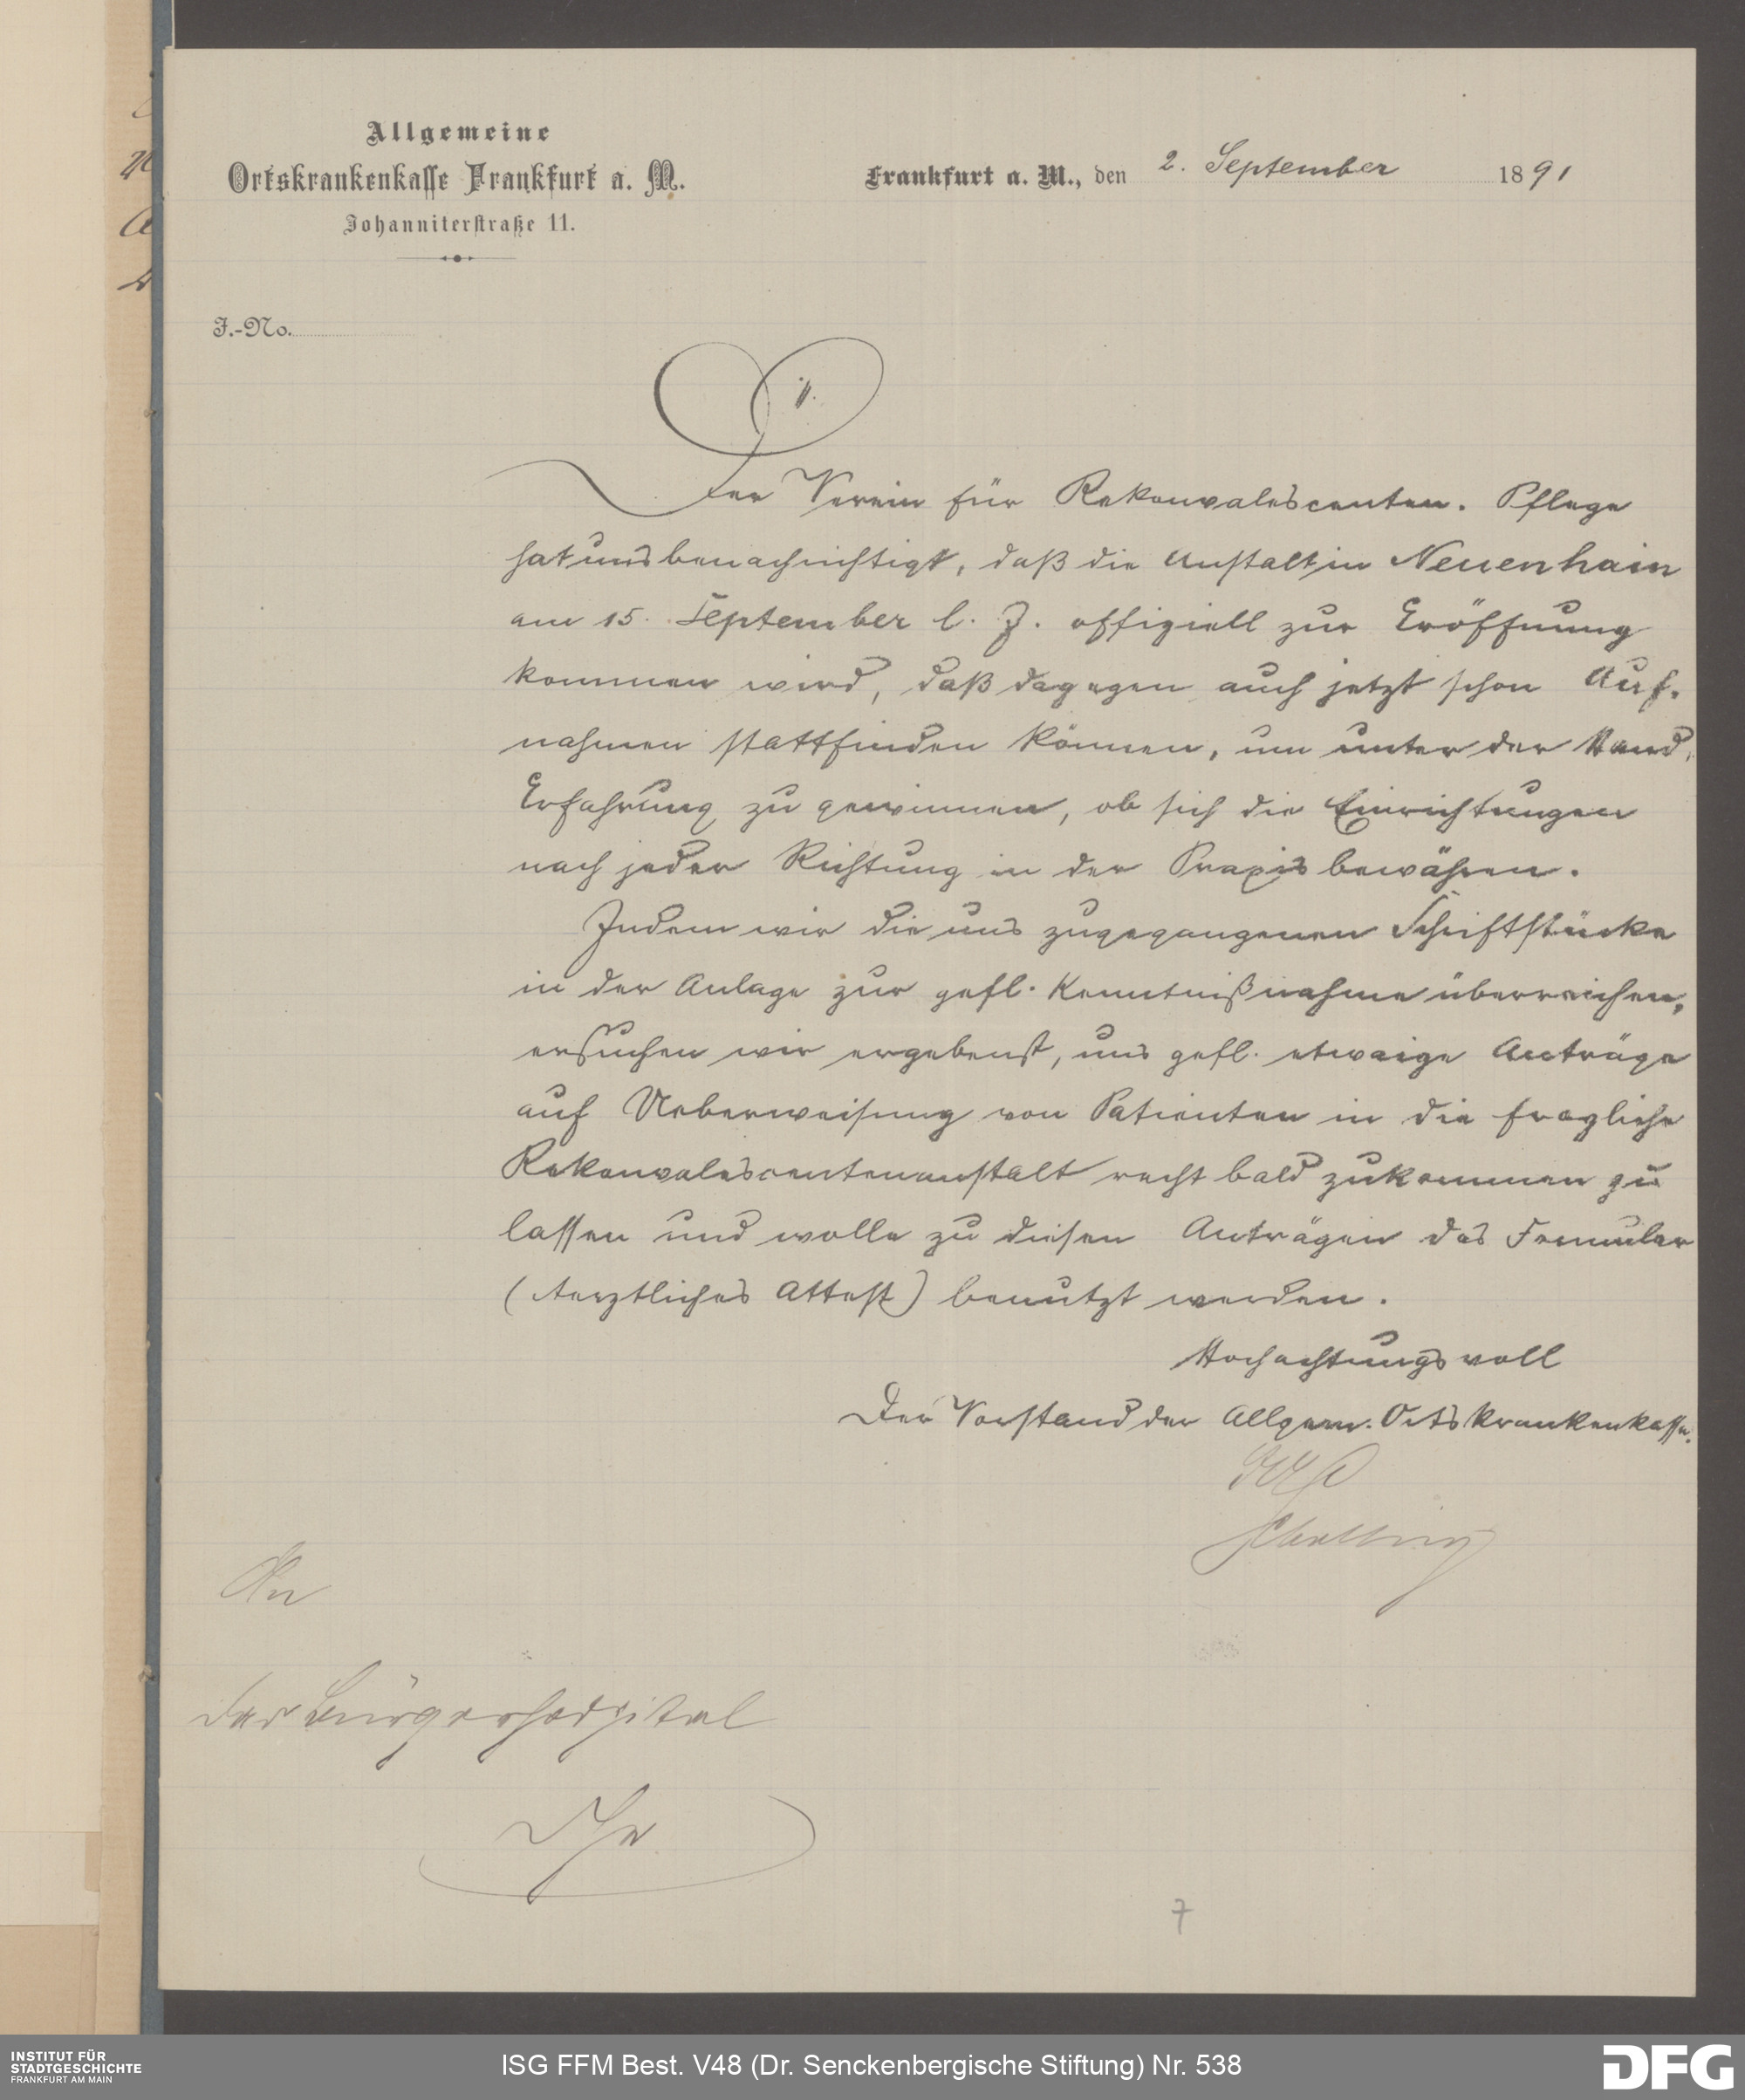 Allgemeine
Ortskrankenkasse Frankfurt a. M.
Johanniterstraße 11.
Frankfurt a. M., den 2. September 1891
J.-No.
Der Verein für Rekonvalescenten-Pflege
hat uns benachrichtigt, daß die Anstalt in Neuenhain
am 15. September l. J. offiziell zur Eröffnung
kommen wird, daß dagegen auch jetzt schon Auf-
nahmen stattfinden können, um unter der Hand,
Erfahrung zu gewinnen, ob sich die Einrichtungen
nach jeder Richtung in der Praxis bewähren.
Indem wir die uns zugegangenen Schriftstücke
in der Anlage zur gefl. Kenntnißnahme überreichen,
ersuchen wir ergebenst, uns gefl. etwaige Anträge
auf Ueberweisung von Patienten in die fragliche
Rekonvalescentenanstalt recht bald zukommen zu
lassen und wolle zu diesen Anträgen das Formular
(Aerztliches Attest) benutzt werden.
Hochachtungsvoll
Der Vorstand der Allgem. Ortskrankenkasse.
An
das Bürgerhospital
Hier
7
INSTITUT FÜR
STADTGESCHICHTE
FRANKFURT AM MAIN
ISG FFM Best. V48 (Dr. Senckenbergische Stiftung) Nr. 538
DFG